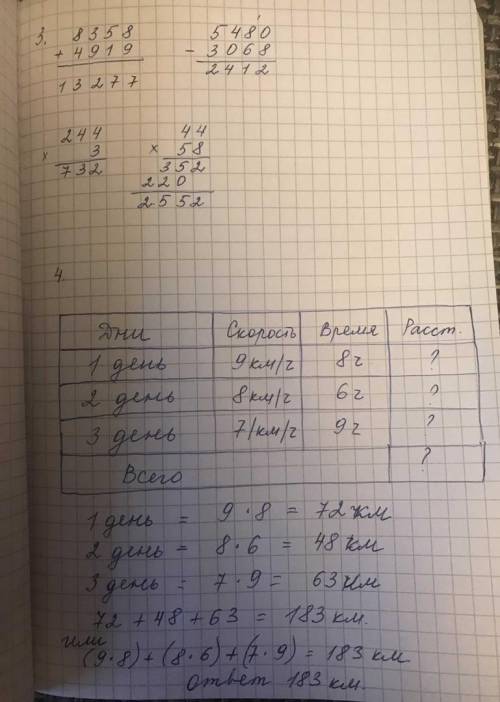 3. 8358
+ 4919
13277
5480
- 3068
2412
244
× 3
732
44
× 58
352
220
2552
4.
Дни Скорость Время Расст.
1 день 9км/ч 8ч ?
2 день 8км/ч 6ч ?
3 день 7/км/ч 9ч ?
Всего ?
1 день = 9·8 = 72 км
2 день = 8·6 = 48 км
3 день = 7·9 = 63 км
72 + 48 + 63 = 183 км.
или
(9·8)+(8·6)+(7·9) = 183 км
ответ 183 км.